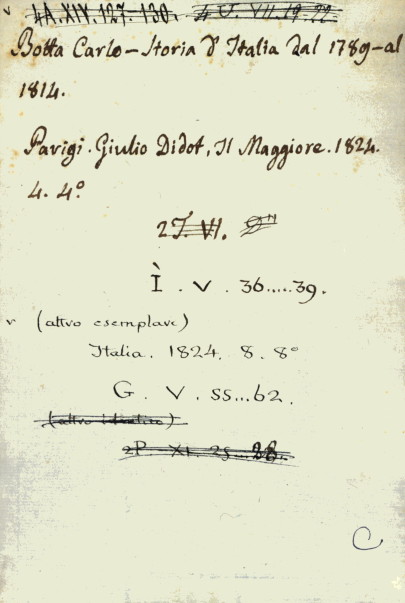 v 4A.XIV.127-130. 4 U. VII. 19-22
Botta Carlo - Storia d'Italia dal 1789-al
1814.
Parigi. Giulio Didot, Il Maggiore. 1824.
4. 4º
2 T. VI.
Ì. V. 36.....39.
v (altro esemplare)
Italia. 1824. 8. 8º
G. V. 55...62.
(altro identico)
2P XI. 25-28.
C